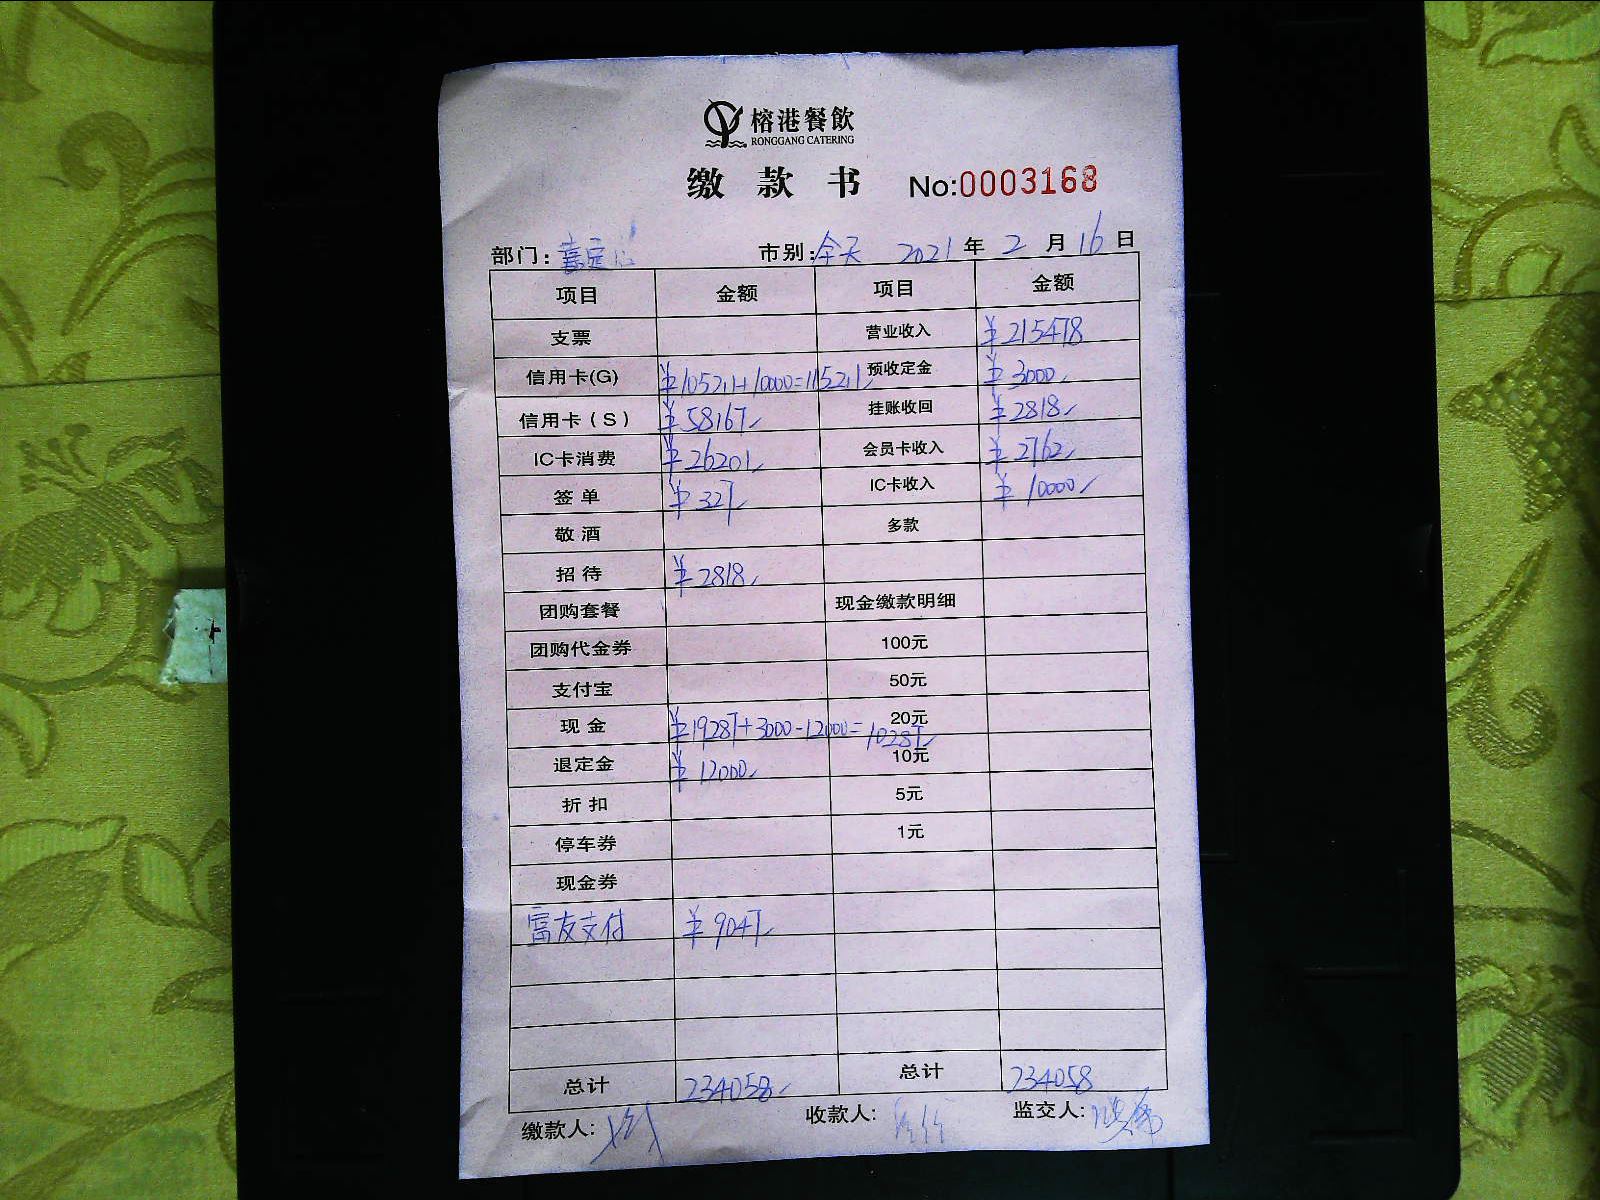 榕港餐飲
RONGGANG CATERING
缴款书 No:0003168
部门: 嘉定店 市别: 今天 2021年2月16日
项目 金额 项目 金额
支票 营业收入 ¥215478
信用卡(G) ¥105211+10000=115211 预收定金 ¥3000
信用卡(S) ¥58167 挂账收回 ¥2818
IC卡消费 ¥26201 会员卡收入 ¥2762
签单 ¥327 IC卡收入 ¥10000
敬酒 多款
招待 ¥2818
团购套餐 现金缴款明细
团购代金券 100元
支付宝 50元
现金 ¥19287+3000-12000=10287 20元
退定金 ¥12000 10元
折扣 5元
停车券 1元
现金券
富友支付 ¥9047
总计 234058 总计 234058
缴款人: 收款人: 监交人: